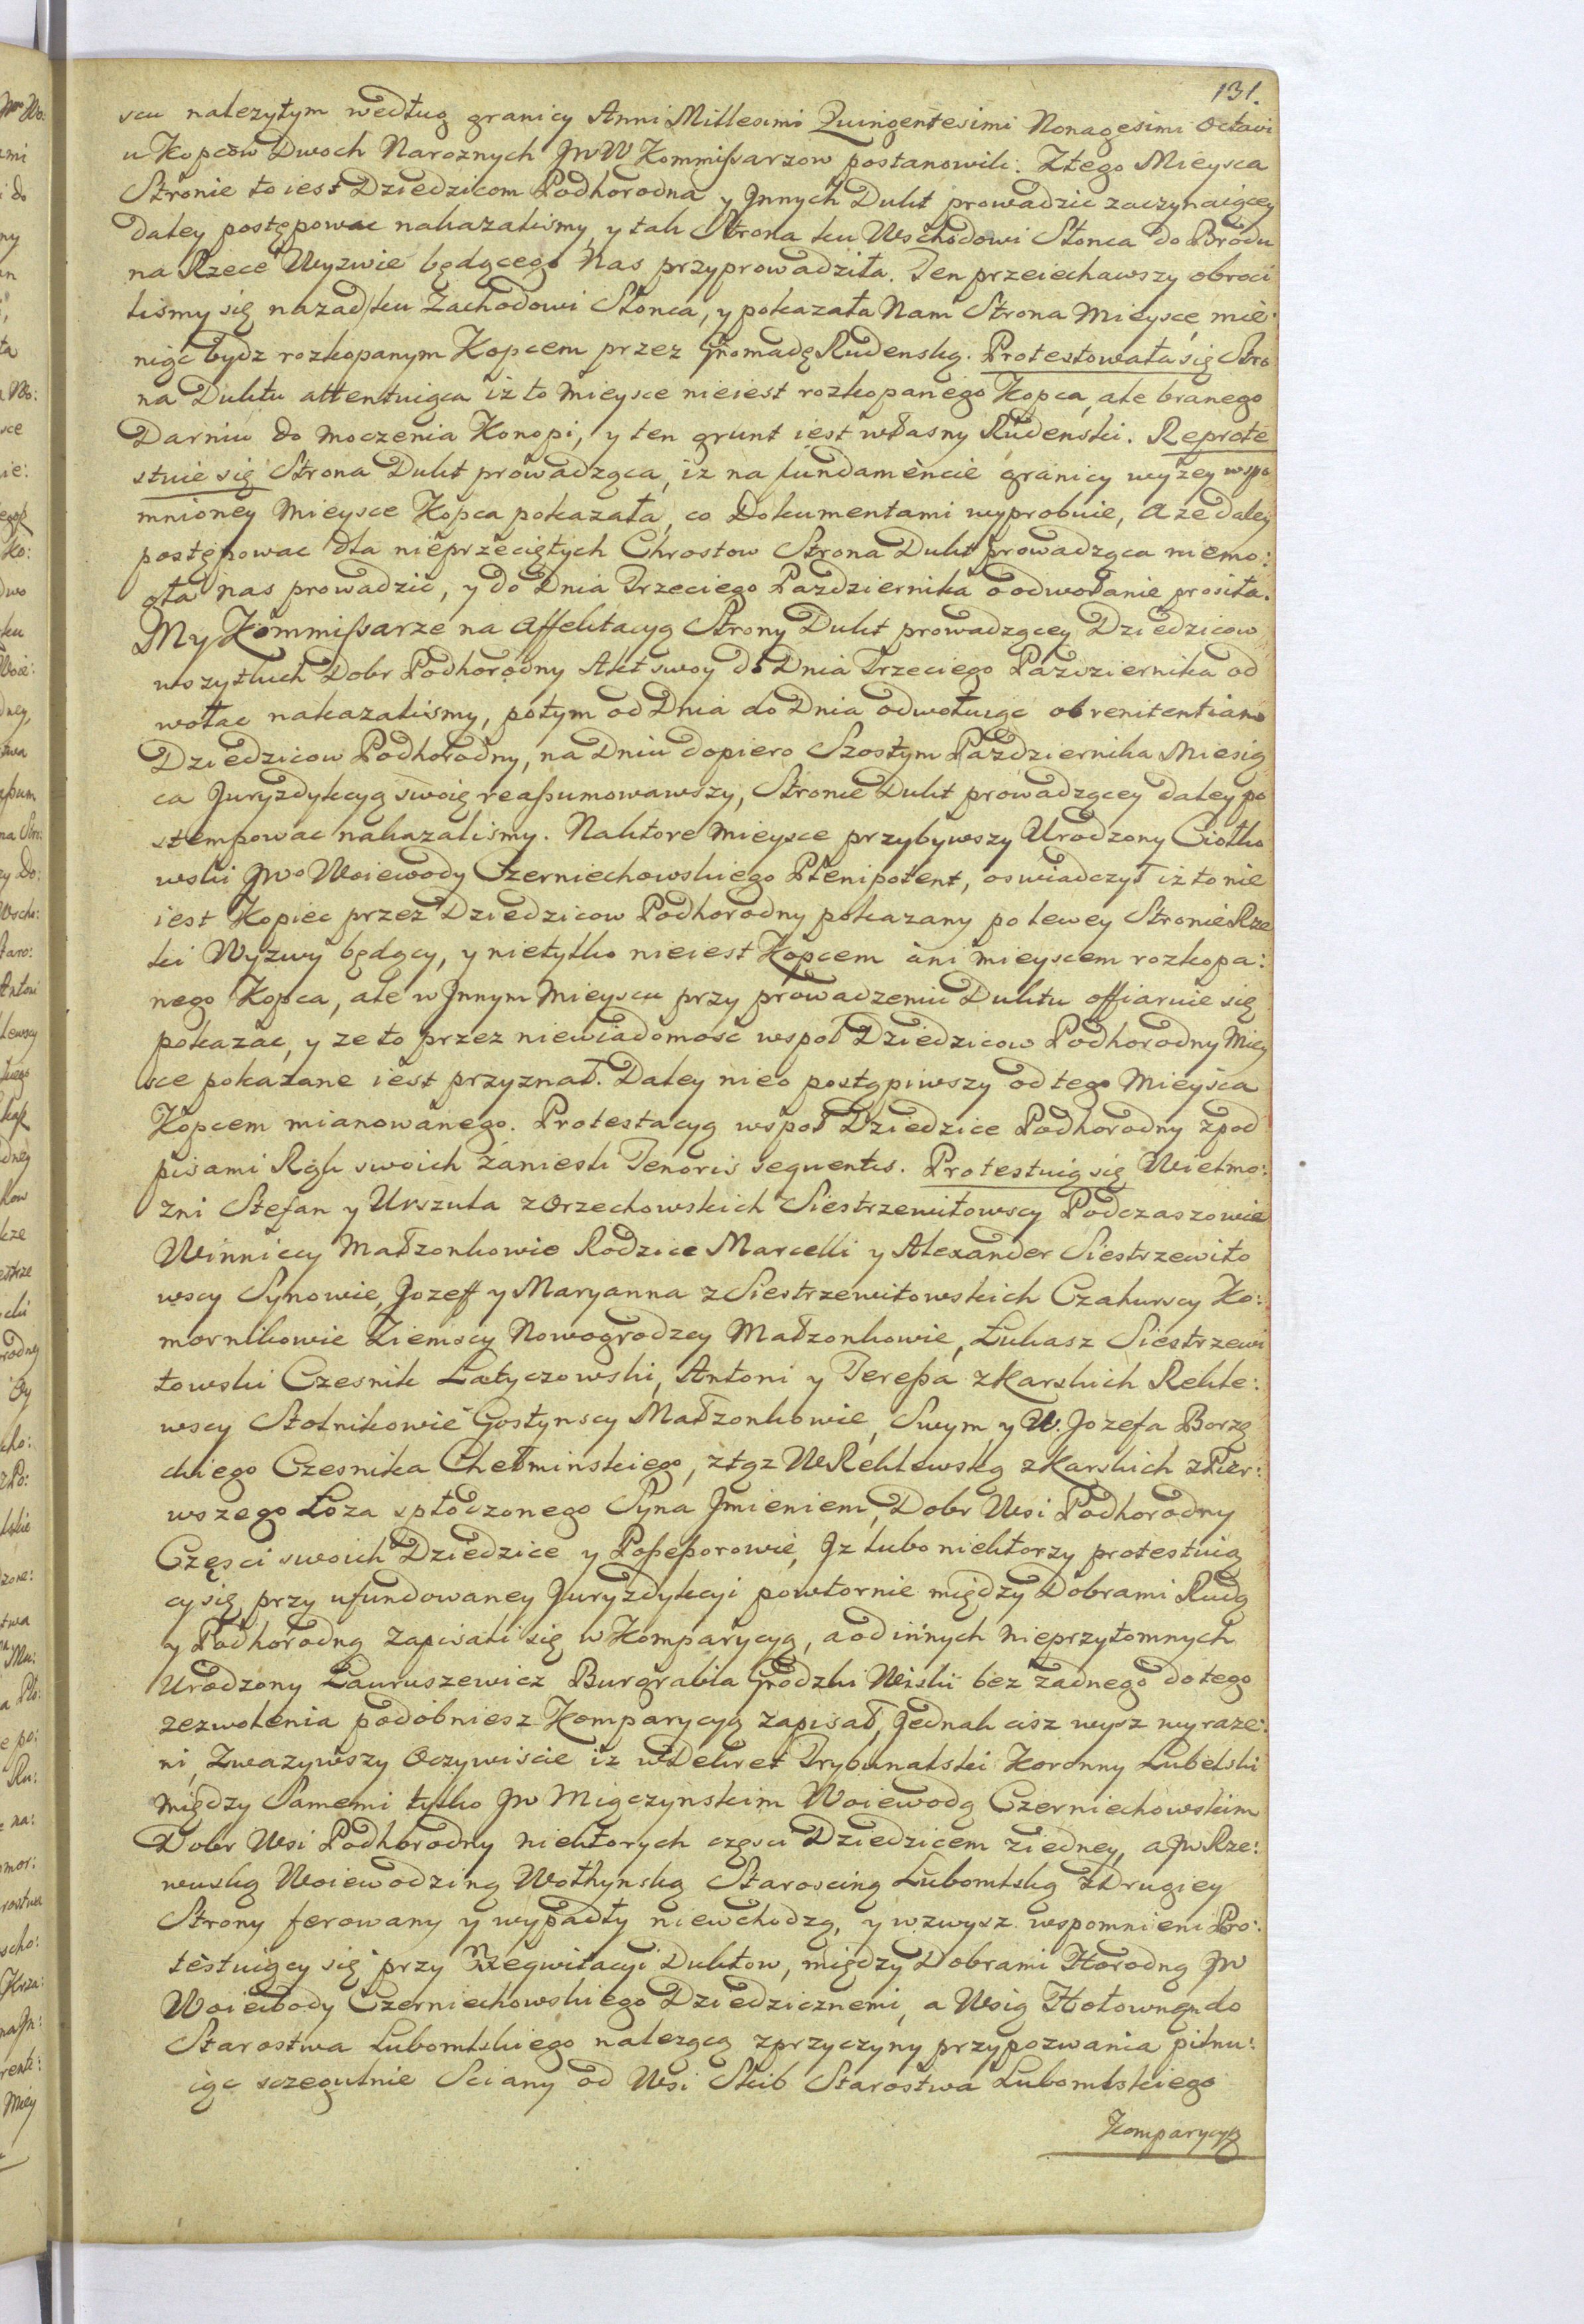 131.
scu nalezytym według granicy Anni Millesimi Quingentesimi Nonagesimi Octavi
u Kopcow Dwoch Naroznych JWW Kommissarzow postanowili. Ztego Mieysca
Stronie to iest Dziedzicom Podhorodna y Jnnych Dukt prowadzic zaczynaiącey
daley postępowac nakazalismy, y tak Strona ku Wschodowi Słonca do Brodu
na Rzece Wyzwie będącego Nas przyprowadziła. Ten przeiechawszy obroci
lismy się nazad ku Zachodowi Słonca, y pokazała Nam Strona Mieysce, mie:
niąc bydz rozkopanym Kopcem przez Gromadę Rudenską. Protestowała się Stro
na Duktu attentuiąca iz to Mieysce nieiest rozkopanego Kopca, ale branego
Darniu do moczenia Konopi, y ten grunt iest własny Rudenski. Reprote
stuie się Strona Dukt prowadząca, iz na fundamencie granicy wyzey wspo
mnioney Mieysce Kopca pokazała, co Dokumentami wyprobuie, A ze daley
postępowac dla nieprzeciętych Chrostow Strona Dukt prowadząca niemo:
gła nas prowadzic, y do Dnia Trzeciego Pazdziernika o odwołanie prosiła.
My Kommissarze na Affektacyą Strony Dukt prowadzącey Dziedzicow
wszytkich Dobr Podhorodny Akt swoy do Dnia Trzeciego Pazdziernika od
wołac nakazalismy, potym od Dnia do Dnia odwołuiąc ob renitentiam
Dziedzicow Podhorodny, na Dniu dopiero Szostym Pazdziernika Miesią
ca Juryzdykcyą swoię reassumowawszy, Stronie Dukt prowadzącey daley po
stempowac nakazalismy. Naktore Mieysce przybywszy Urodzony Ciołko
wski JWo Woiewody Czerniechowskiego Plenipotent, oswiadczył iz to nie
iest Kopiec przez Dziedzicow Podhorodny pokazany po lewey Stronie Rze
ki Wyzwy będący, y nietylko nieiest Kopcem ani mieyscem rozkopa:
nego Kopca, ale w Jnnym Mieyscu przy prowadzeniu Duktu offiaruie się
pokazac, y ze to przez niewiadomosc wspoł Dziedzicow Podhorodny Miey
sce pokazane iest przyznał. Daley nieo postąpiwszy od tego Mieysca
Kopcem mianowanego. Protestacyą wspoł Dziedzice Podhorodny zpod
pisami Rąk swoich zaniesli Tenoris sequentis. Protestuią się Wielmo:
zni Stefan y Urszula z Orzechowskich Siestrzewitowscy Podczaszowie
Winniccy Małzonkowie Rodzice Marcelli y Alexander Siestrzewito
wscy Synowie, Jozeff y Maryanna z Siestrzewitowskich Czakurscy Ko:
mornikowie Ziemscy Nowogrodzcy Małzonkowie, Łukasz Siestrzewi
towski Czesnik Latyczowski, Antoni y Teressa z Karskich Rekle:
wscy Stolnikowie Gostynscy Małzonkowie, Swym y W. Jozefa Borzę
ckiego Czesnika Chełminskiego, ztąz W Reklewską z Karskich z Pier:
wszego Łoza spłodzonego Syna Jmieniem, Dobr Wsi Podhorodny
Częsci swoich Dziedzice y Possessorowie, Jz lubo niektorzy protestuią
cy się, przy ufundowaney Juryzdykcyi powtornie między Dobrami Rudą
y Podhorodną zapisali się w Komparycyą, a od innych nieprzytomnych
Urodzony Lauruszewicz Burgrabia Grodzki bez zadnego do tego
zezwolenia podobniesz Komparycyą zapisał, Jednak cisz wysz wyraze:
ni, Zwazywszy Oczywiscie iz w Dekret Trybunalski Koronny Lubelski
między Samemi tylko JW Miączynskim Woiewodą Czerniechowskim
Dobr Wsi Podhorodny niektorych częsci Dziedzicem ziedney, a JW Rze:
wuską Woiewodziną Wołhynską Starosciną Lubomlską z Drugiey
Strony ferowany y wypadły niewchodzą, y wzwysz wspomnieni Pro:
testuiący się przy Rzegwitacyi Duktow, między Dobrami Horodną JW
Woiewody Czerniechowskiego Dziedzicznemi, a Wsią Hołowną do
Starostwa Lubomlskiego nalezącą zprzyczyny przypozwania pilnu:
iąc sczegulnie Sciany od Wsi Skib Starostwa Lubomlskiego
Komparycyą